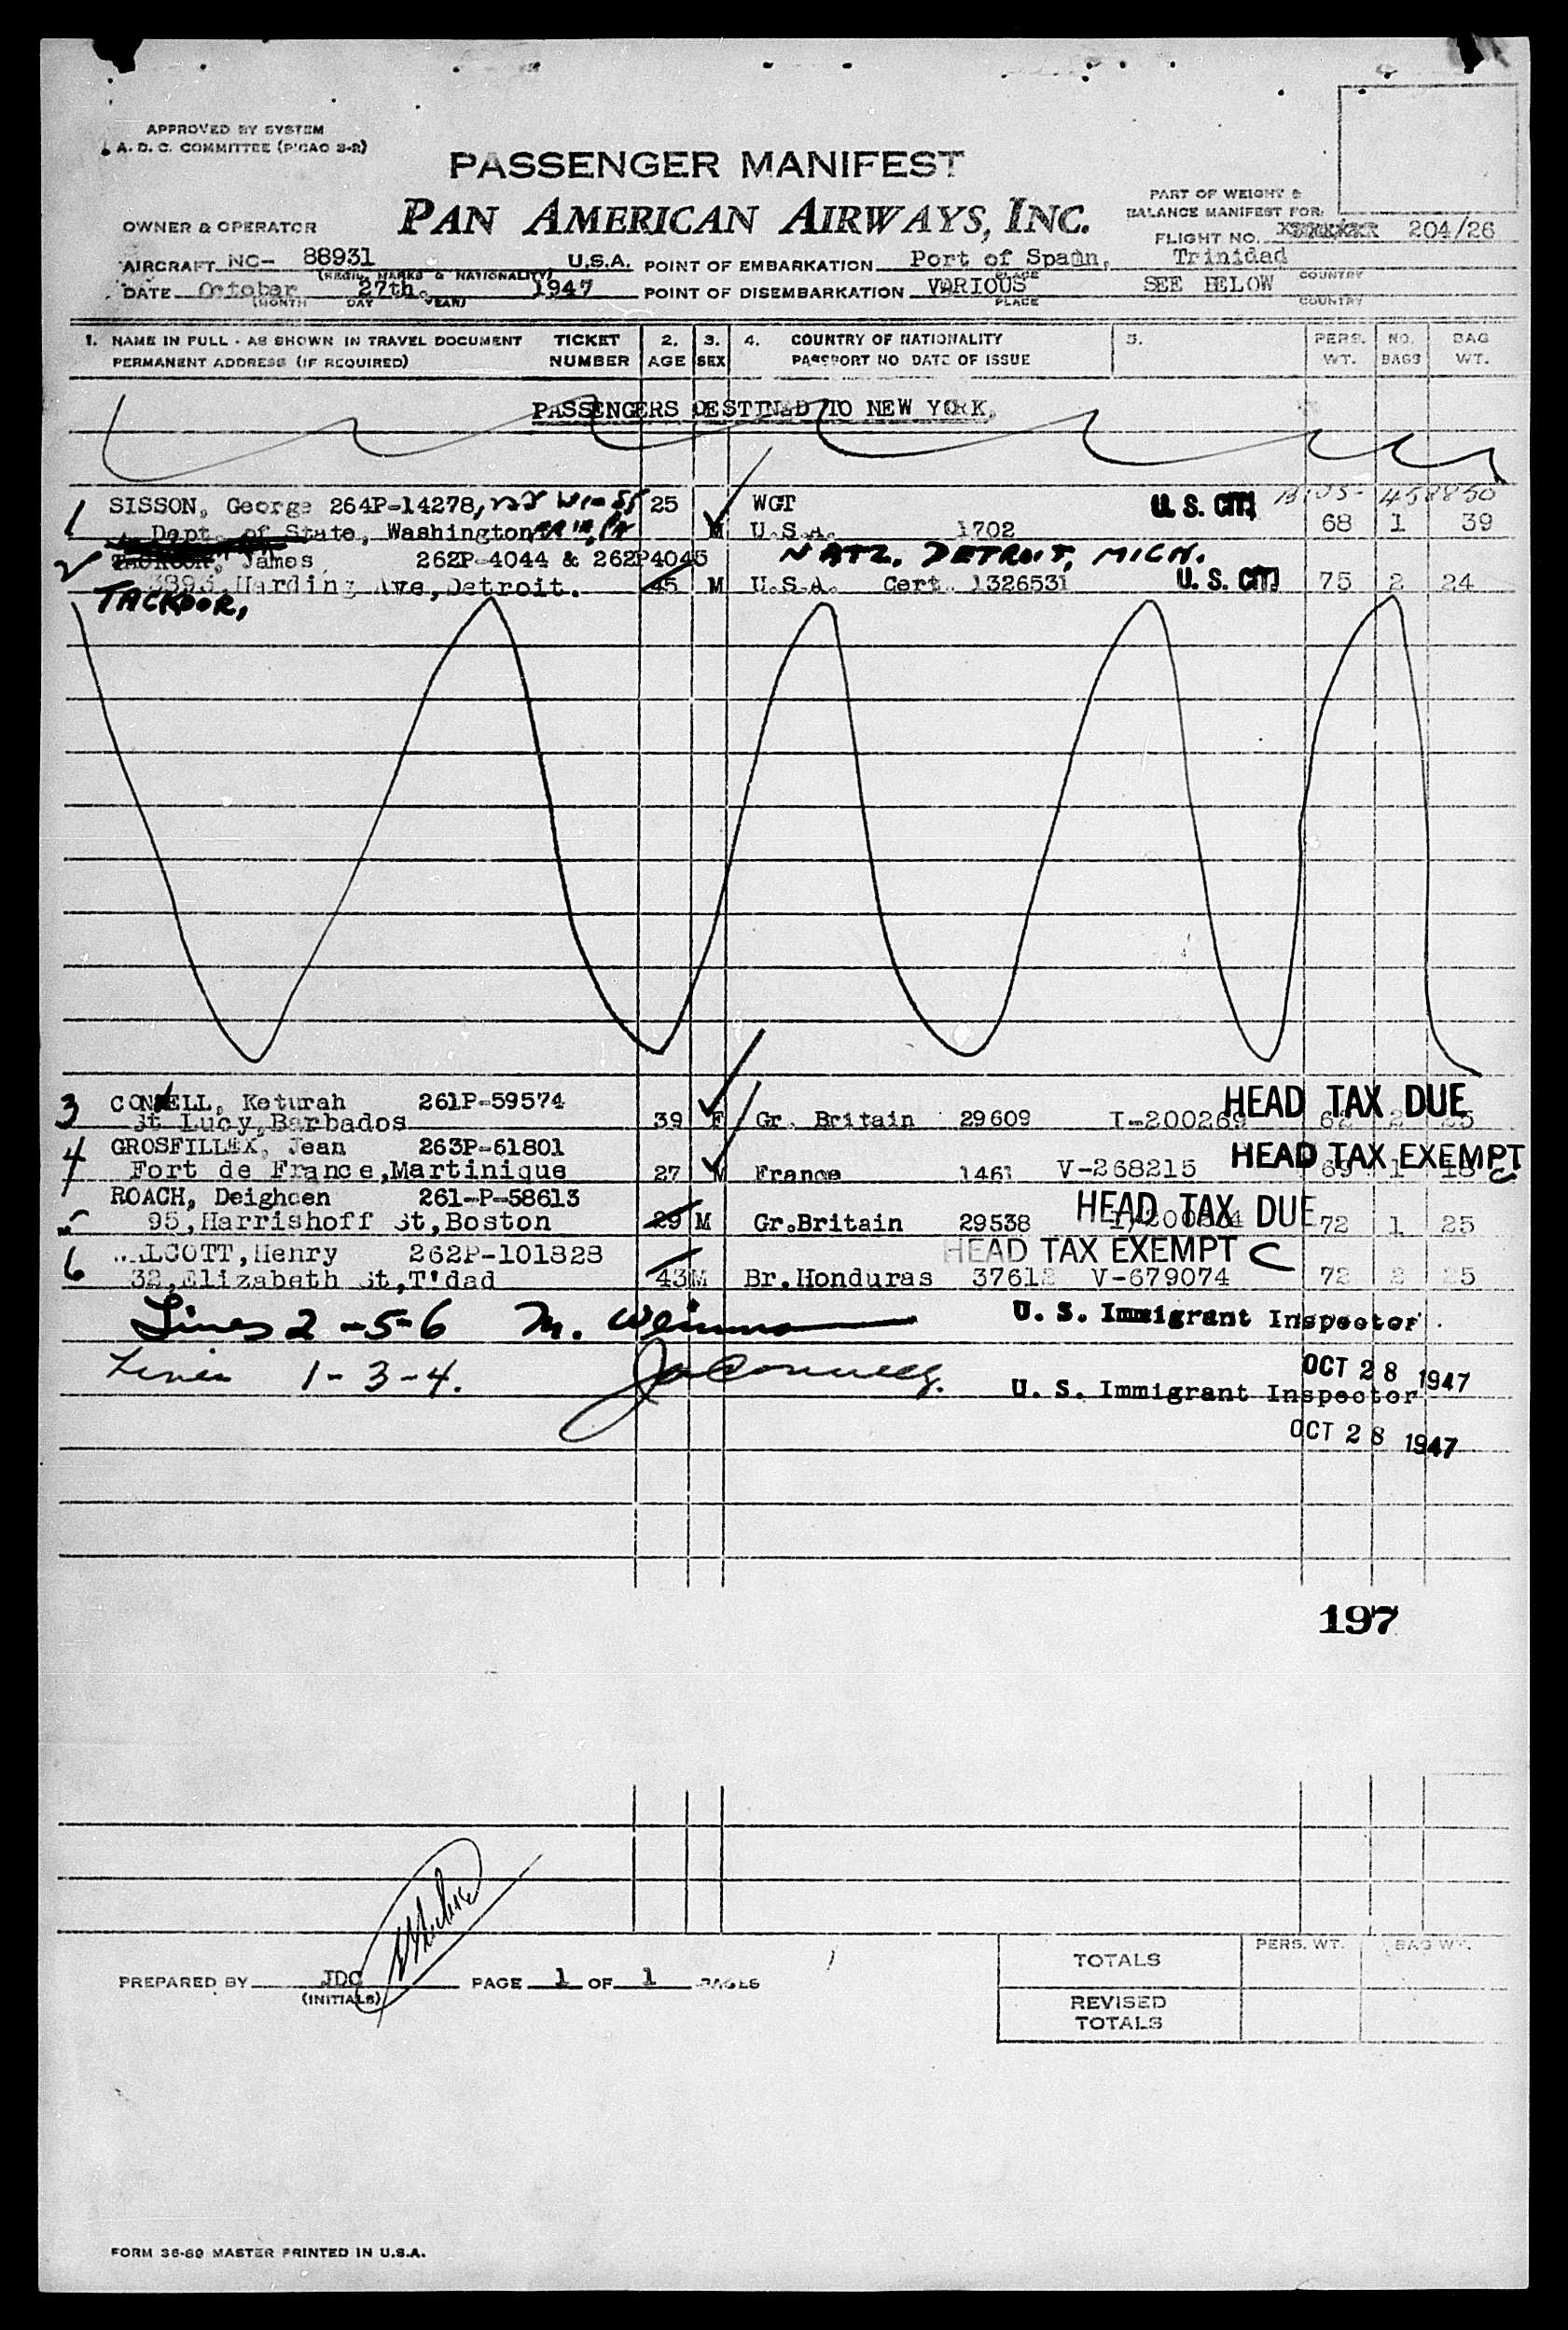 APPROVED BY SYSTEM
A. D. C. COMMITTEE (PICAO S-2)
PASSENGER MANIFEST
PAN AMERICAN AIRWAYS, INC.
PART OF WEIGHT &
BALANCE MANIFEST FOR:
OWNER & OPERATOR
FLIGHT NO. 204/26
AIRCRAFT NC- 88931 U.S.A. POINT OF EMBARKATION Port of Spain, Trinidad
(REGIS. MARKS & NATIONALITY) PLACE COUNTRY
DATE October 27th. 1947 POINT OF DISEMBARKATION VARIOUS SEE BELOW
(MONTH DAY YEAR) PLACE COUNTRY
1. NAME IN FULL - AS SHOWN IN TRAVEL DOCUMENT TICKET 2. 3. 4. COUNTRY OF NATIONALITY 5. PERS. NO. BAG
PERMANENT ADDRESS (IF REQUIRED) NUMBER AGE SEX PASSPORT NO DATE OF ISSUE WT. BAGS WT.
PASSENGERS DESTINED TO NEW YORK.
1 SISSON, George 264P-14278, 25 WGT U. S. CIT. 458850
Dept. of State, Washington M U.S.A. 1702 68 1 39
2 James 262P-4044 & 262P4045 NATZ. DETROIT, MICH.
3893, Harding Ave, Detroit. 45 M U.S.A. Cert. 1326531 U. S. CIT. 75 2 24
TACKOOR,
3 CONNELL, Keturah 261P-59574 HEAD TAX DUE
St Lucy, Barbados 39 F Gr. Britain 29609 I-200269 62 2 25
4 GROSFILLEX, Jean 263P-61801 HEAD TAX EXEMPT
Fort de France, Martinique 27 M France 1461 V-268215 69 1 18 C
5 ROACH, Deighoen 261-P-58613 HEAD TAX DUE
95, Harrishoff St, Boston 29 M Gr. Britain 29538 72 1 25
6 WALCOTT, Henry 262P-101828 HEAD TAX EXEMPT C
32, Elizabeth St, T'dad 43 M Br. Honduras 37612 V-679074 72 2 25
Lines 2-5-6 M. U. S. Immigrant Inspector
OCT 28 1947
Lines 1-3-4. U. S. Immigrant Inspector
OCT 28 1947
197
PREPARED BY JDC PAGE 1 OF 1 PAGES
(INITIALS)
PERS. WT. BAG WT.
TOTALS
REVISED
TOTALS
FORM 36-69 MASTER PRINTED IN U.S.A.